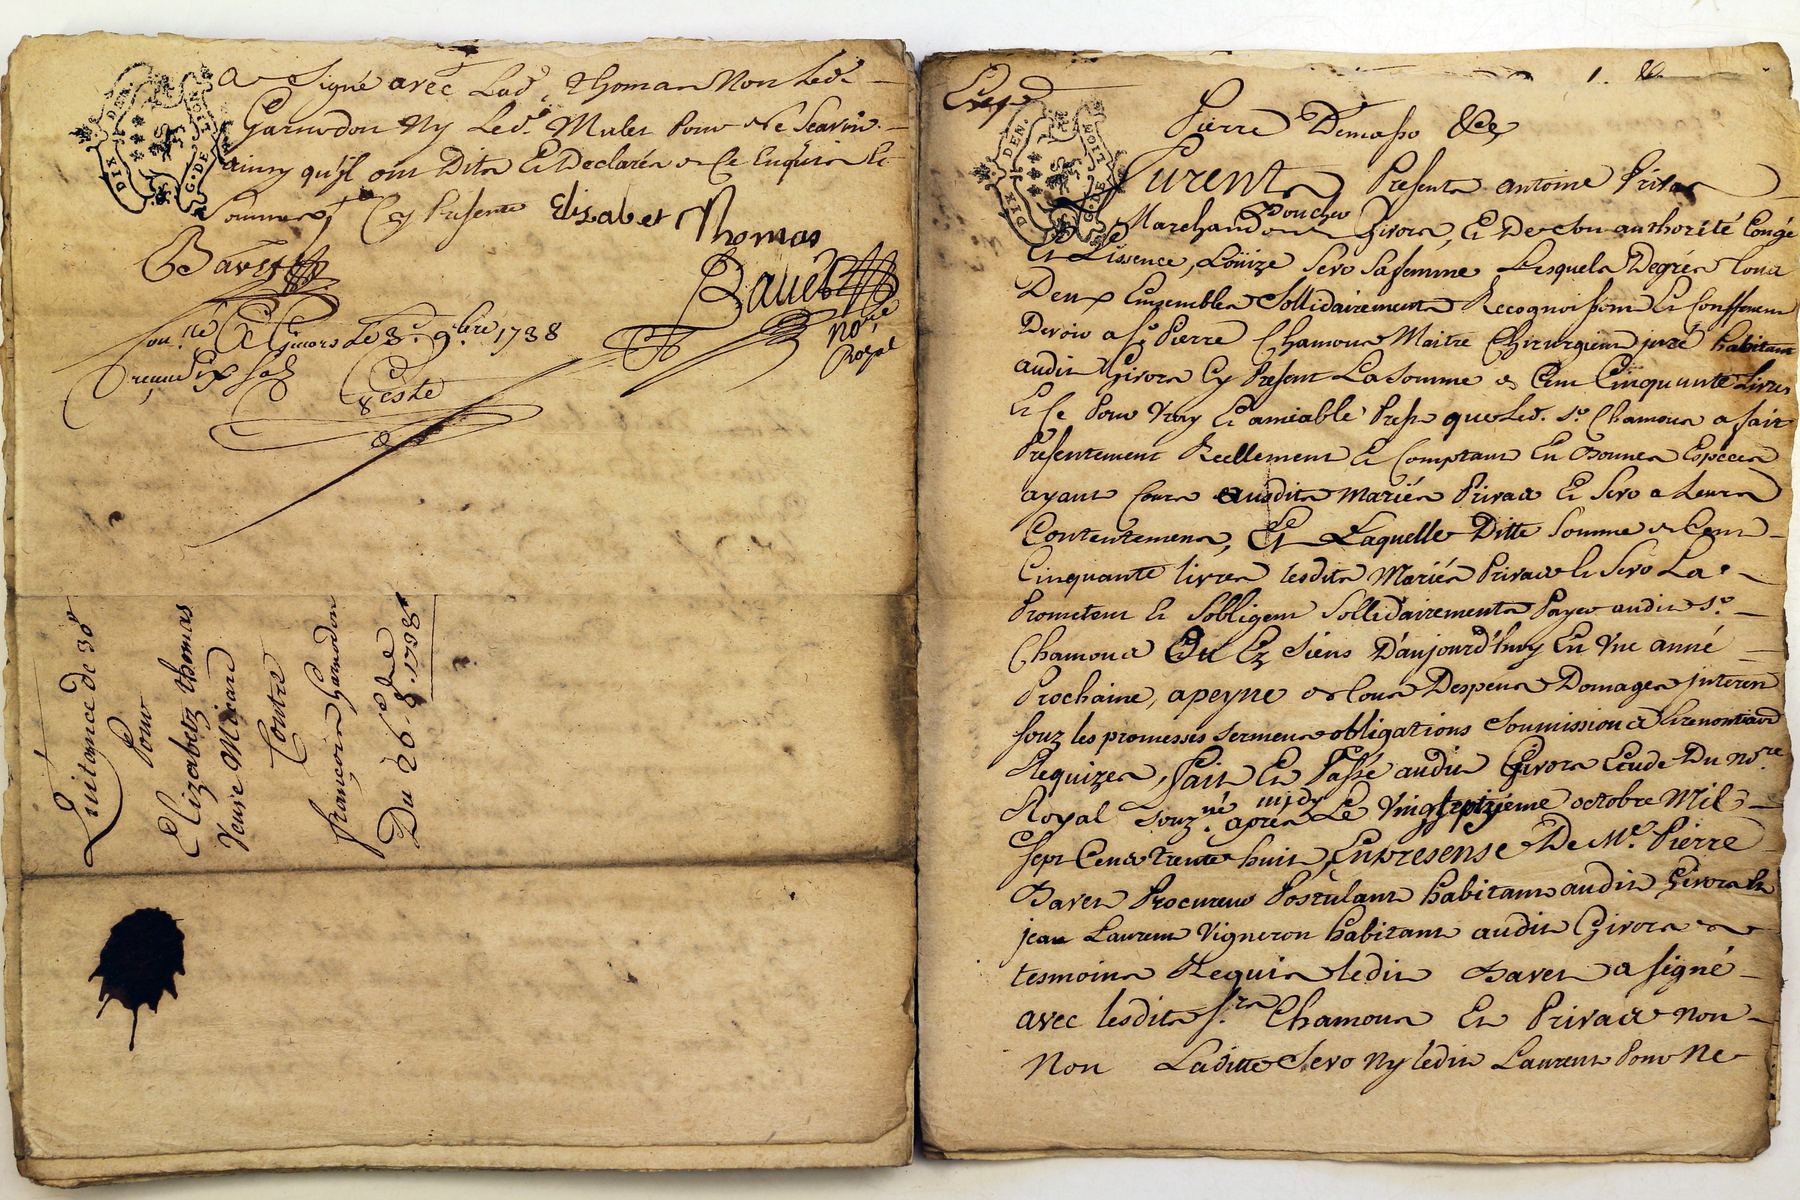 a Signé avec Lad. Thomas Non Led.
Garnodon Ny Led. Mulet Pour Ne Scavoir
ainsy qu'il ont Dits Et Declarés de Ce Enquis Et
Sommés, Cy Presente Elizabet Thomas
Bavet
Bavet
no.re Royal
Con.lé A Givors Le 3.e 9.bre 1738
Reçu dix Sols
Quitance de 30
Pour
Elizabetz thomas
Veuve
Contre
françois Garnodon
Du 26 8.bre 1738
DIX DEN.
G. DE LION
Exp.
1.
Pierre Demaso &c
DIX DEN.
G. DE LION
Furents Presents antoine Privas
Marchand Boucher Givors, Et De Son authorité Congé
Et Lissence, Loüize Sevo Safemme Lesquels Degrés Tous
Deux Ensembles Sollidairements Recognoissent Et Confessent
Devoir a S.r Pierre Chamous Maitre Chirurgien juré habitant
audit Givors Cy Present La Somme de Cent Cinquante Livres
Et Ce Pour Vray Et amiable Prest que Led. S.r Chamous a fait
Presentement Reellement Et Comptant En Bonnes Especes
ayant Cours ausdits Mariés Privas Et Sevo a Leurs
Contentements, Et Laquelle Ditte Somme de Cent
Cinquante livres lesdits Mariés Privas Et Sevo La
Prometent Et Sobligent Sollidairements Payer audit S.r
Chamous Ou Ez Siens D'aujourd'huy En Vne anné
Prochaine, apeyne de Tous Despens Domages interets
souz les promesses serments obligations Soumissions Et renontiaõns
Requizes, fait Et Passé audit Givors Etude Du no.re
Royal Souz.né après midy Le Vingtseptzieme octobre Mil
sept Cents trente huit, En presense De M.e Pierre
Bavet Procureur Postulant habitant audit Givors Et
jean Laurent Vigneron habitant audit Givors
tesmoins Requis ledit Bavet a signé
avec lesdits s.rs Chamous Et Privas non
Non Laditte Sevo Ny ledit Laurent Pour Ne